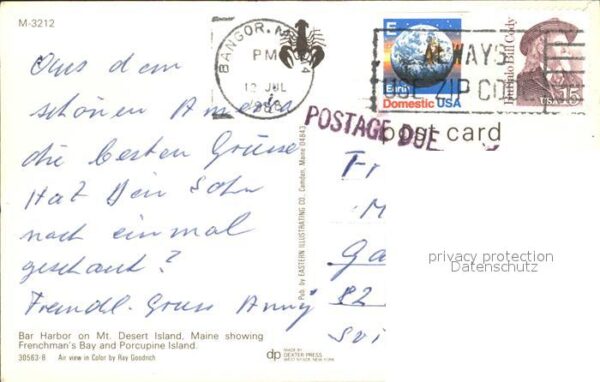 M-3212
BANGOR, M
PM
12 JUL
E
Earth
Domestic USA
Buffalo Bill Cody
USA 15
ALWAYS
USE ZIP CO
POSTAGE DUE
post card
Aus dem
schönen Amerika
die besten Grüsse
Hat Dein Sohn
noch einmal
geschaut?
Freundl. Gruss Anny
Fr
M
Ga
82
Svi
privacy protection
Datenschutz
Pub. by EASTERN ILLUSTRATING CO. Camden, Maine 04843
Bar Harbor on Mt. Desert Island, Maine showing
Frenchman's Bay and Porcupine Island.
30563-B Air view in Color by Ray Goodrich
dp
MADE BY
DEXTER PRESS
WEST NYACK, NEW YORK